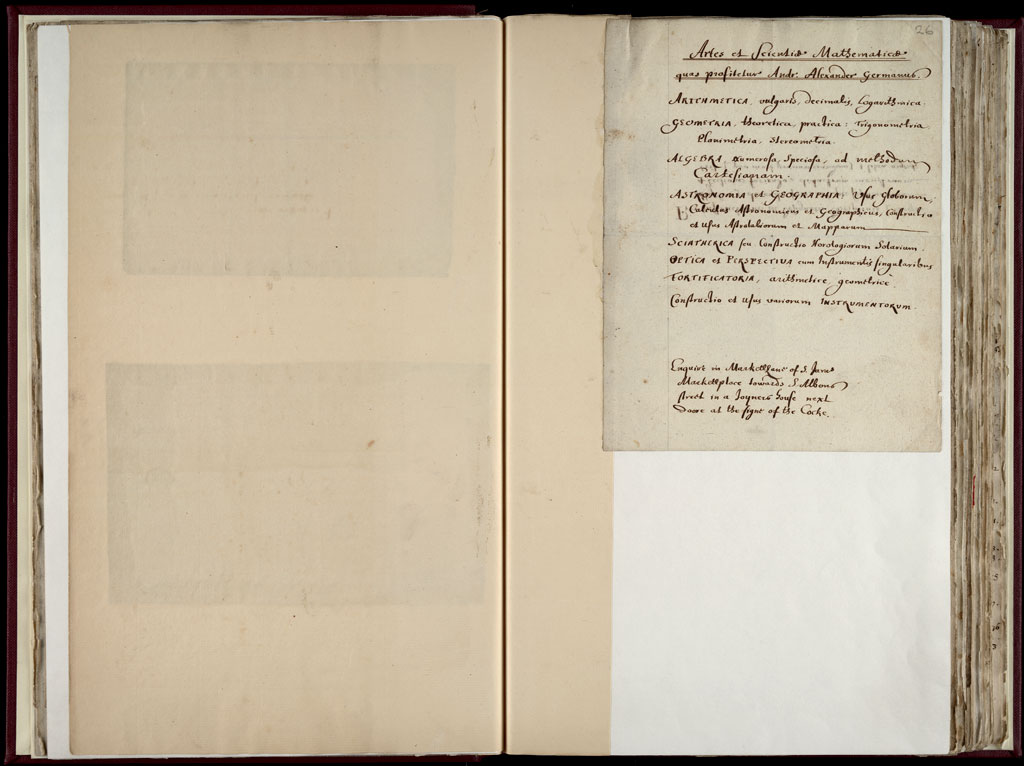 26
Artes et Scientiæ Mathematicæ
quas profitetur Andr. Alexander Germanus.
ARITHMETICA, vulgaris, decimalis, Logarithmica.
GEOMETRIA, theoretica, practica: Trigonometria,
Planimetria, Stereometria.
ALGEBRA, numerosa, speciosa, ad methodum
Cartesianam.
ASTRONOMIA et GEOGRAPHIA, Usus Globorum,
Calculus Astronomicus et Geographicus, Constructio
et usus Astrolabiorum et Mapparum
SCIATHERICA seu Constructio Horologiorum Solarium.
OPTICA et PERSPECTIVA cum Instrumentis singularibus
FORTIFICATORIA, arithmetice, geometricè.
Constructio et usus variorum INSTRUMENTORUM.
Enquire in Markettlane of S. James
Markettplace towards S. Albons
street in a Joyners house next
Doore at the signe of the Cocke.